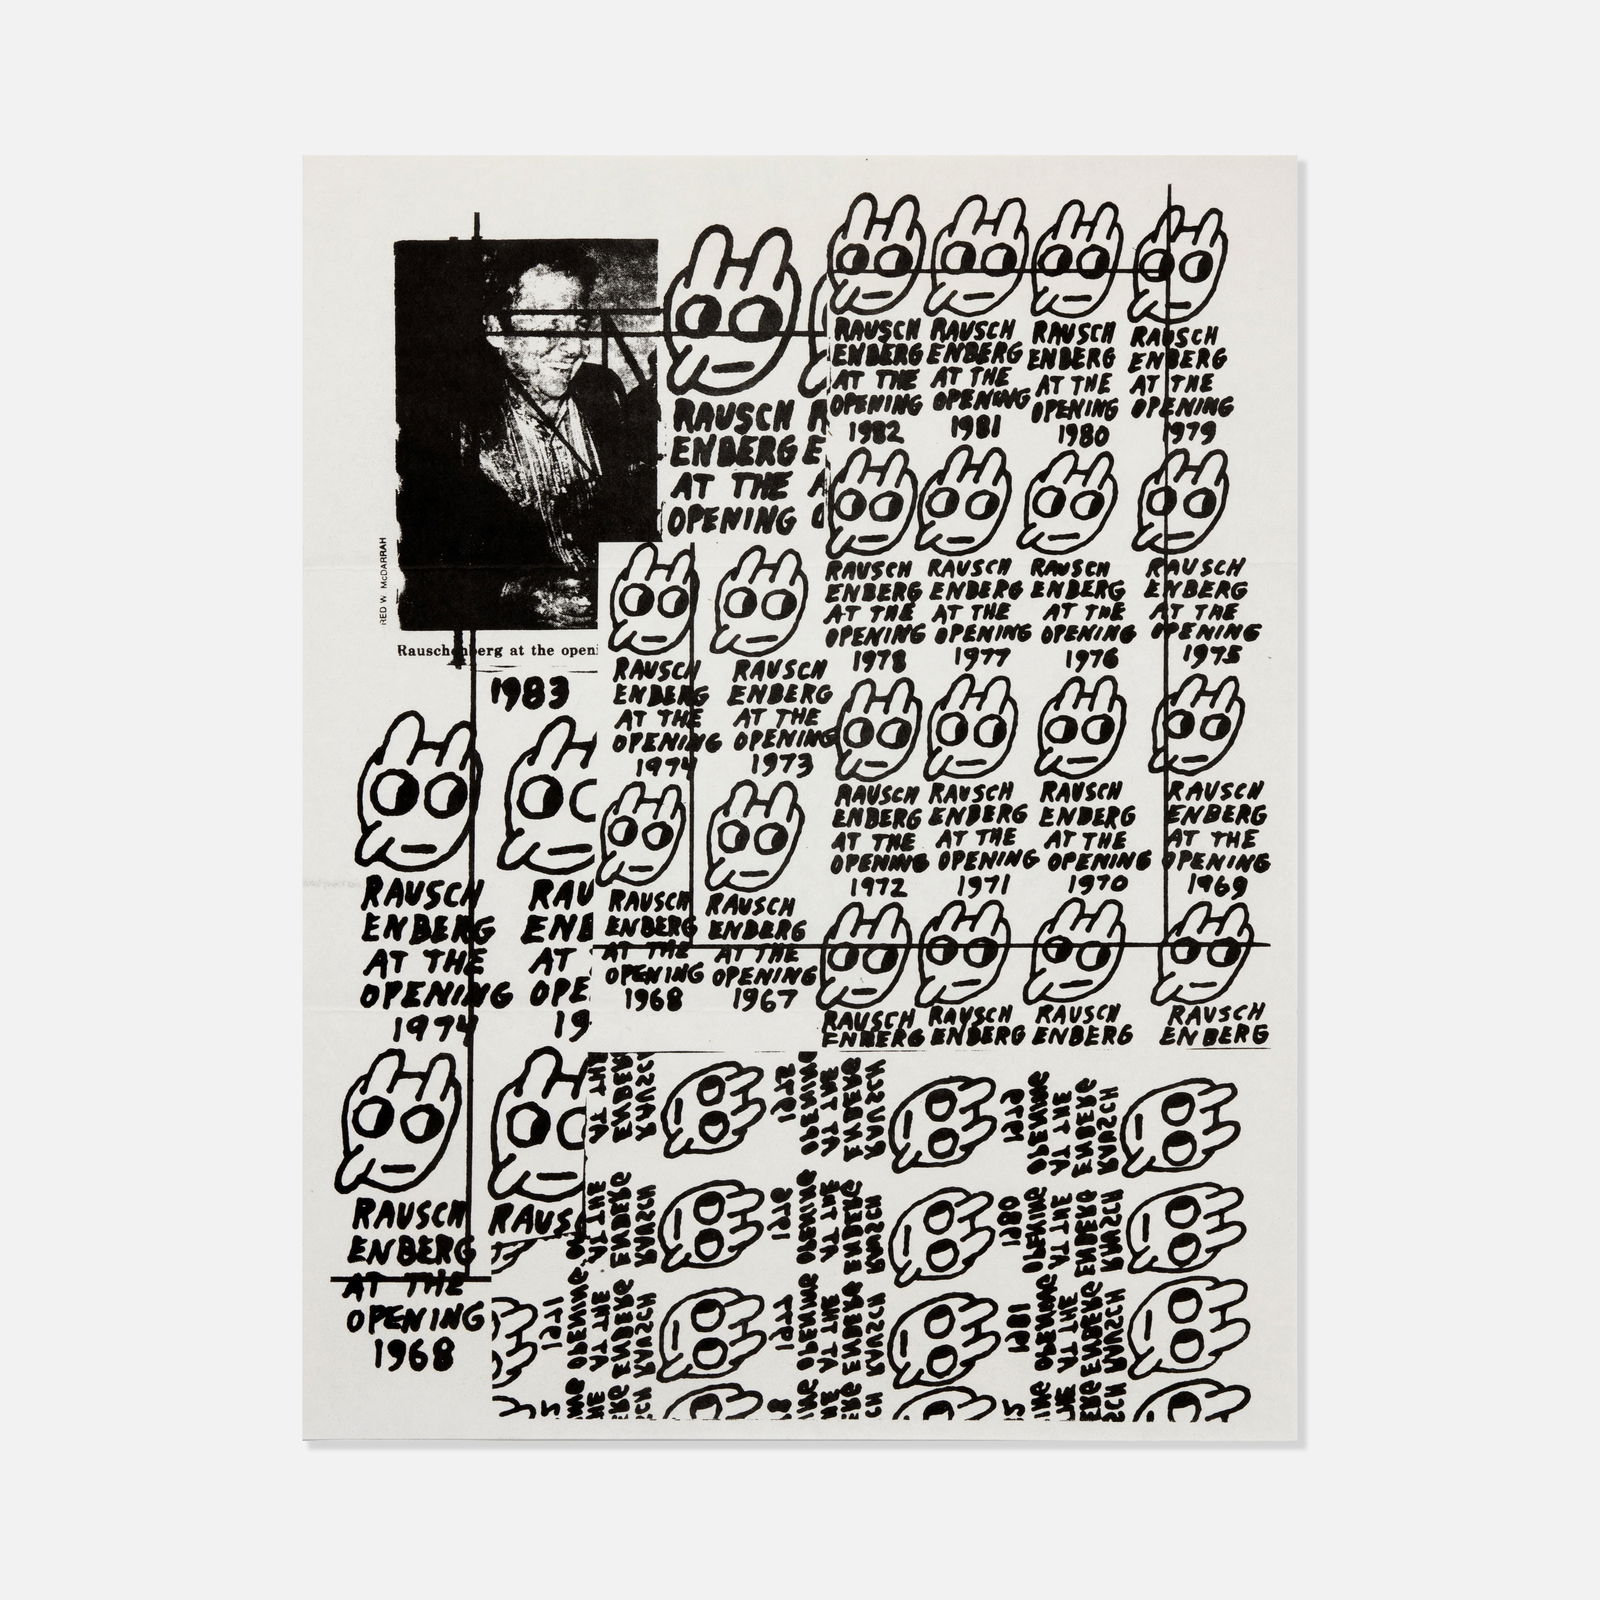 RED W. McDARRAH
Rauschenberg at the openi
1983
RAUSCH
ENBERG
AT THE
OPENING
RAUSCH RAUSCH RAUSCH RAUSCH
ENBERG ENBERG ENBERG ENBERG
AT THE AT THE AT THE AT THE
OPENING OPENING OPENING OPENING
1982 1981 1980 1979
RAUSCH RAUSCH RAUSCH RAUSCH
ENBERG ENBERG ENBERG ENBERG
AT THE AT THE AT THE AT THE
OPENING OPENING OPENING OPENING
1978 1977 1976 1975
RAUSCH RAUSCH
ENBERG ENBERG
AT THE AT THE
OPENING OPENING
1974 1973
RAUSCH RAUSCH RAUSCH RAUSCH
ENBERG ENBERG ENBERG ENBERG
AT THE AT THE AT THE AT THE
OPENING OPENING OPENING OPENING
1972 1971 1970 1969
RAUSCH RAUSCH
ENBERG ENBERG
AT THE AT THE
OPENING OPENING
1968 1967
RAUSCH RAUSCH RAUSCH RAUSCH
ENBERG ENBERG ENBERG ENBERG
RAUSCH RAU
ENBERG ENB
AT THE AT
OPENING OPE
1974 19
RAUSCH RAUS
ENBERG
AT THE
OPENING
1968
RAUSCH
ENBERG
AT THE
OPENING
1980
RAUSCH
ENBERG
AT THE
OPENING
1971
RAUSCH
ENBERG
AT THE
OPENING
1977
RAUSCH
ENBERG
AT THE
OPENING
1981